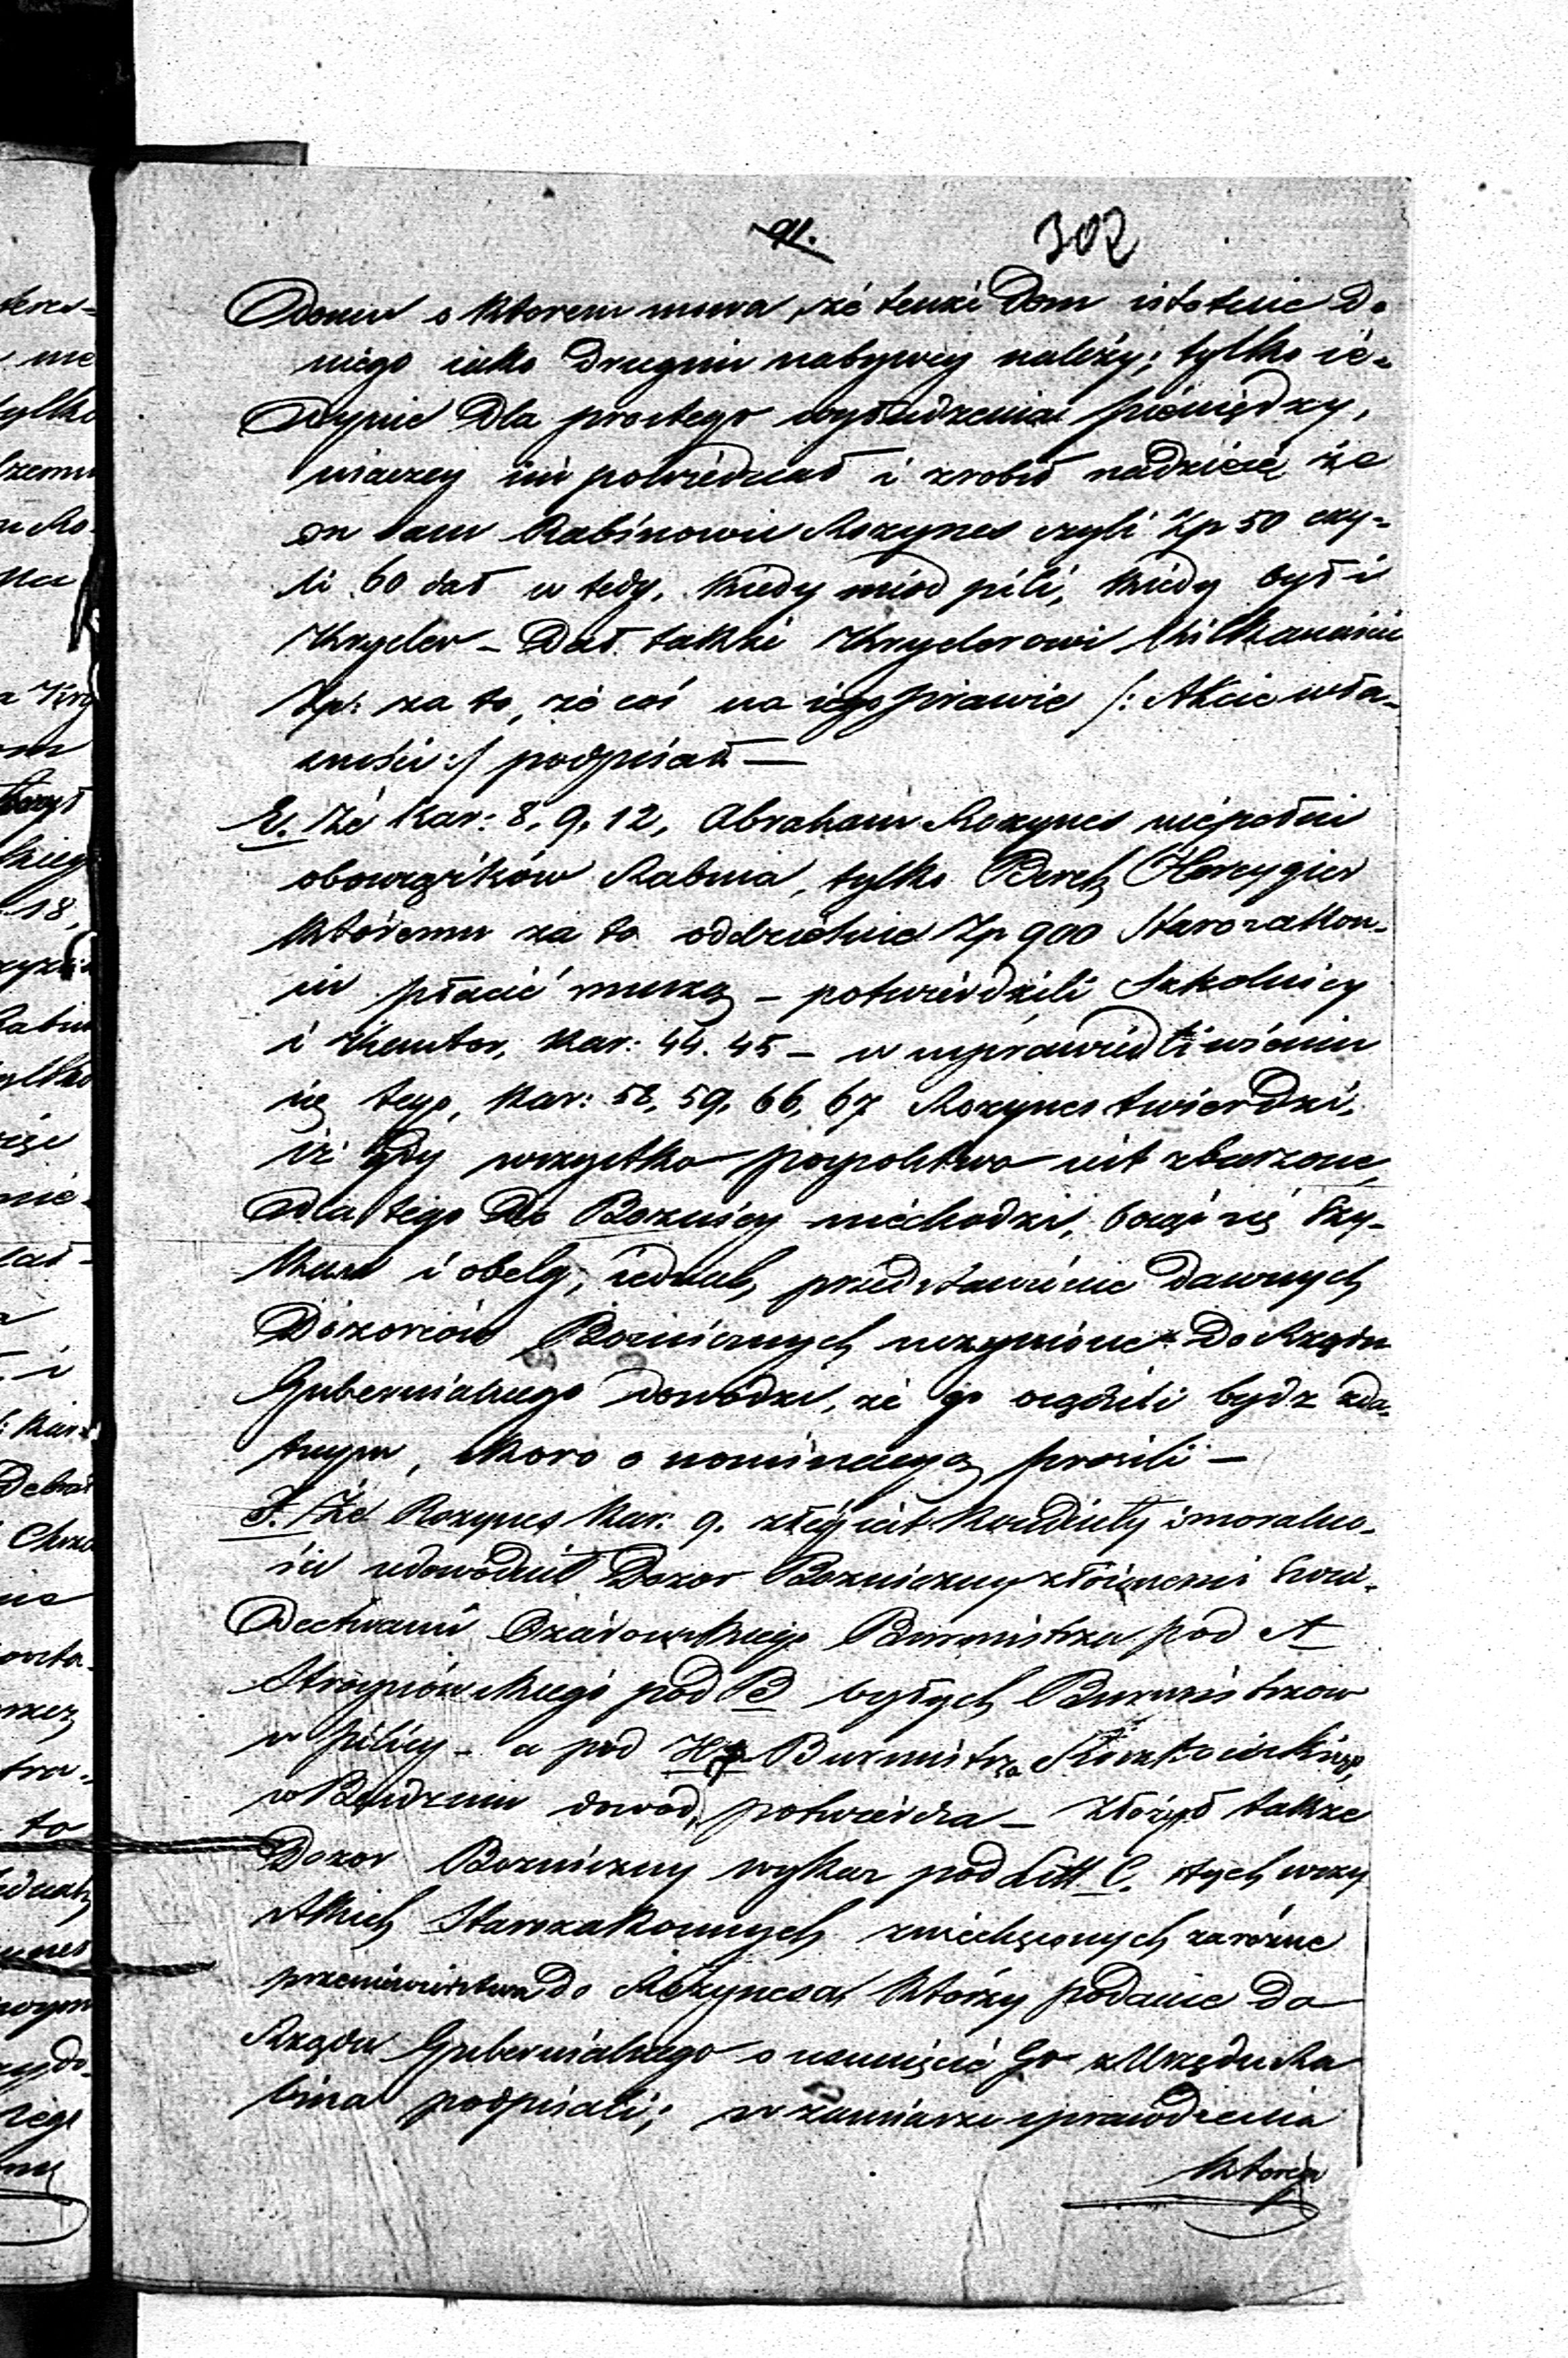 91.
302
domu o ktorem mowa, że tenże dom istotnie do
niego iako drugim nabywcy należy; tylko ie=
dynie dla prostego wyłudzenia pieniędzy,
inaczey im powiedział i zrobił nadzieię że
on sam Rabinowi Rozynes czyli Zp 50 czy=
li 60 dał wtedy, kiedy miod pili, kiedy był i
Krycler – Dał także Kryclerowi kilkanaście
Zp: za to, że coś na iego prawie /: Akcie wła-
sności :/ podpisał —
E. Że Kar: 8, 9, 12, Abraham Rozynes niepełni
obowiązków Rabina, tylko Berek Hercygier
ktoremu za to oddzielnie Zp 900 Starozakon-
ni płacić muszą – potwierdzili Szkolnicy
i Kantor, kar: 44. 45 – w usprawiedliwieniu
się tego, kar: 58, 59, 66, 67 Rozynes twierdzi,
iż gdy wszystko pospolstwo iest zburzone,
dla tego do Bożnicy niechodzi, boiąc się Szy-
kan i obelg, iednak przedstawienie dawnych
Dozorców Bożniczych uczynione do Rządu
Gubernialnego dowodzi, że go osądzili bydź zda-
tnym, skoro o nominacyą prosili –
F. Że Rozynes Kar: 9. złey iest konduity i moralno-
ści udowodnił Dozor Bożniczny złożonemi Swia-
dectwami Ożarowskiego Burmistrza pod A
Stropiowskiego pod B byłych Burmistrzow
w Pilicy – a pod Burmistrza
w Bendzinie dowod, potwierdza – złożył także
Dozor Bozniczny wykaz pod Litt C. tych wszy
stkich Starozakonnych zniechęconych za różne
przeniewierstwa do Rozynesa, ktorzy podanie do
Rządu Gubernialnego o usunięcie Go z Urzędu Ra
bina podpisali; w zamiarze sprawdzenia
ktorego